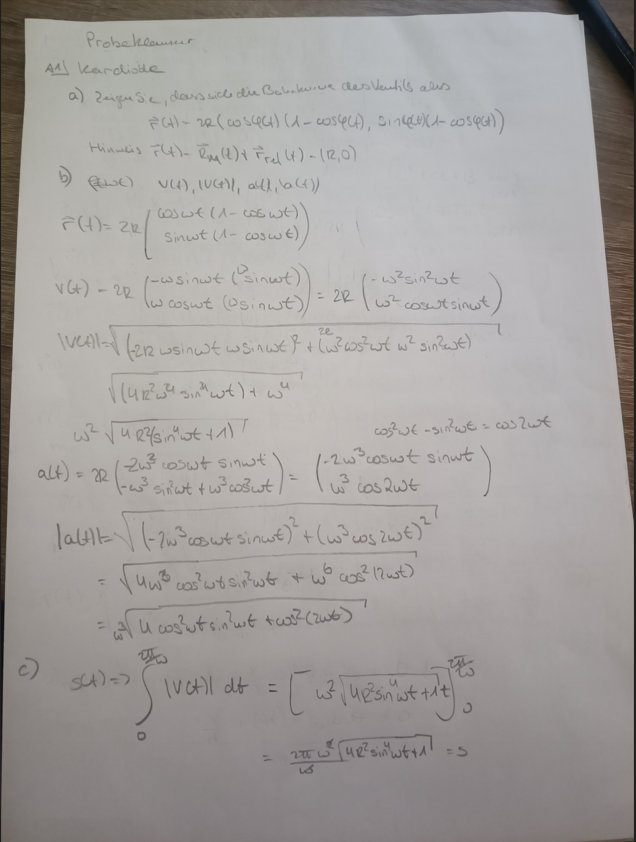 Probeklausur
A1) Kardiode
a) Zeigen Sie, dass sich die Bahnkurve des Ventils als
r⃗(t) = 2R (cosφ(t) (1 - cosφ(t), sinφ(t)(1 - cosφ(t))
Hinweis r⃗(t) = R⃗_M(t) + r⃗_rel(t) - (R, 0)
b) v(t), |v(t)|, a(t), |a(t)|
r⃗(t) = 2R (cosωt (1 - cosωt) / sinωt (1 - cosωt))
v(t) = 2R (-ω sinωt (0 sinωt) / ω cosωt (0 sinωt)) = 2R (-ω² sin²ωt / ω² cosωt sinωt)
|v(t)| = √((-2R ω sinωt ω sinωt)² + (2R ω² cos²ωt ω² sin²ωt)
√(4R²ω⁴ sin⁴ωt) + ω⁴
ω² √(4R² sin⁴ωt + 1)
cos²ωt - sin²ωt = cos 2ωt
a(t) = 2R (-2ω³ cosωt sinωt / -ω³ sin²ωt + ω³ cos²ωt) = (-2ω³ cosωt sinωt / ω³ cos 2ωt)
|a(t)| = √((-2ω³ cosωt sinωt)² + (ω³ cos 2ωt)²
= √(4ω⁶ cos²ωt sin²ωt + ω⁶ cos²(2ωt)
= ω³ √(4 cos²ωt sin²ωt + cos²(2ωt)
c) s(t) => ∫₀^(2π/ω) |v(t)| dt = [ω² √(4R² sin⁴ωt + 1) t]₀^(2π/ω)
= 2π ω² / ω √(4R² sin⁴ωt + 1) = s